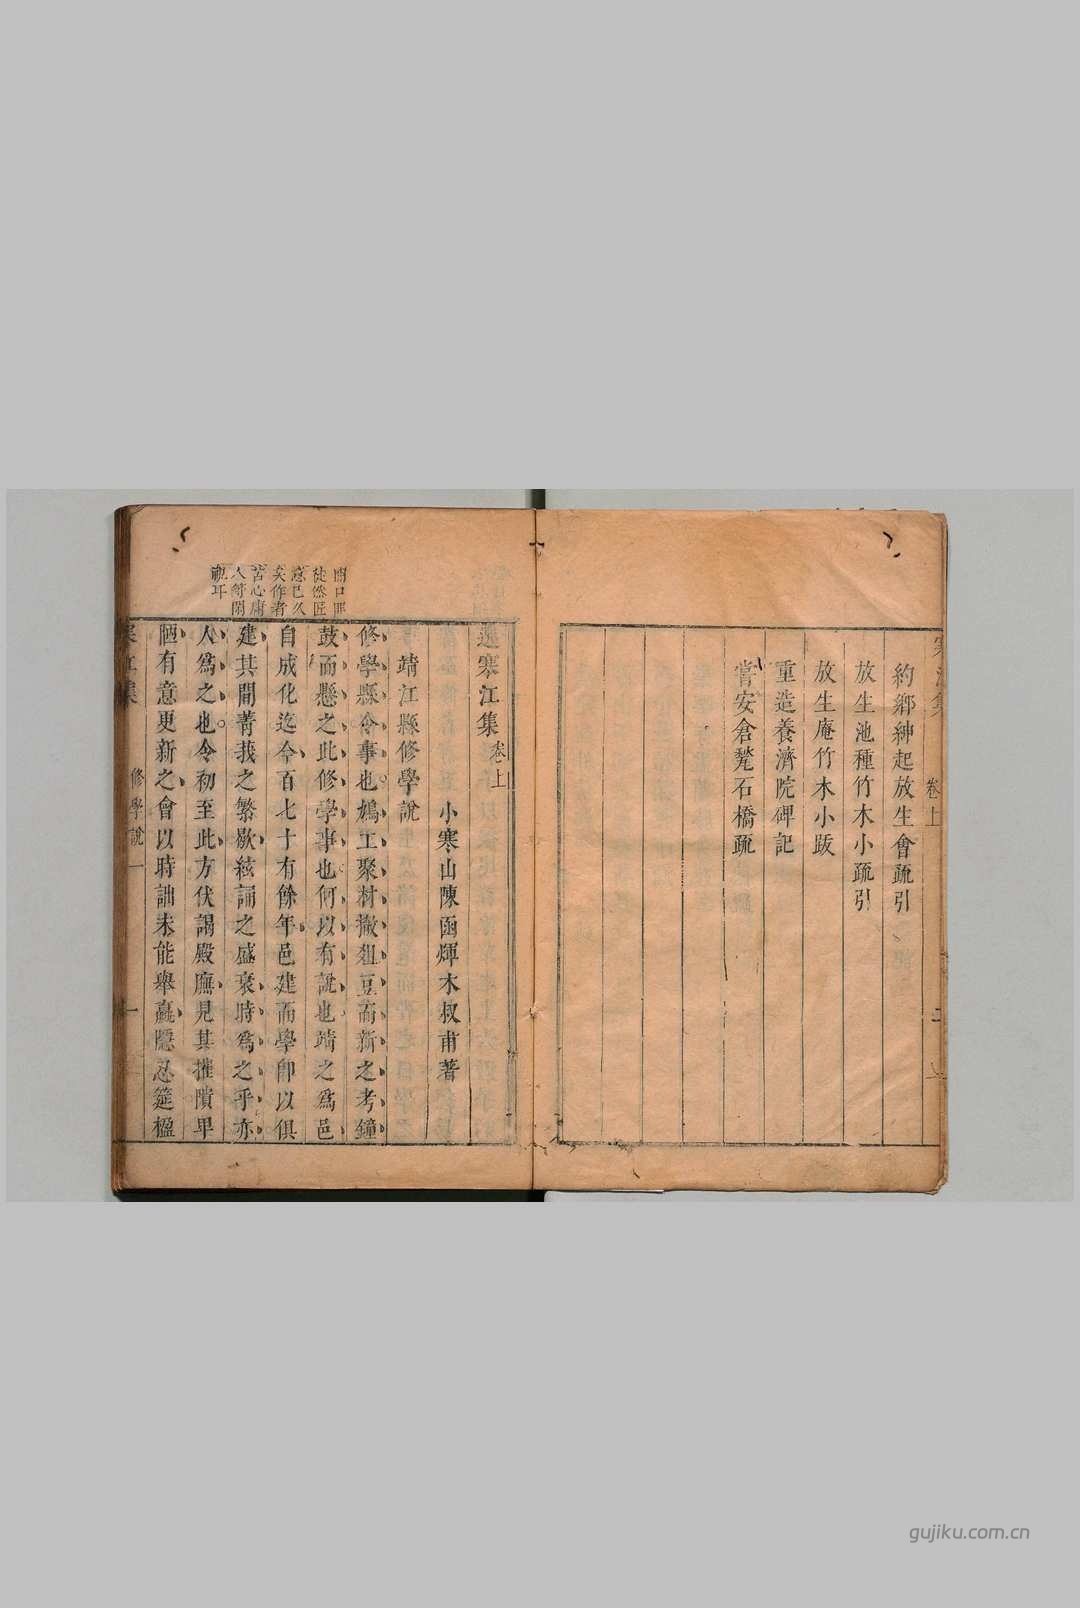 卷上
約鄉紳起放生會疏引
放生池種竹木小疏引
放生庵竹木小跋
重造養濟院碑記
嘗安倉甃石橋疏
二
選寒江集卷上
小寒山陳函煇木叔甫著
靖江縣修學說
修學縣令事也鳩工聚材撤俎豆而新之考鐘
鼓而懸之此修學事也何以有說也靖之爲邑
自成化迄今百七十有餘年邑建而學卽以俱
建其間菁莪之繁歇絃誦之盛衰時爲之乎亦
人爲之也令初至此方伏謁殿廡見其摧隤卑
陋有意更新之會以時詘未能舉羸隱忍筵楹
開口即
徒然匠
意已久
矣作者
苦心庸
人等閒
視耳
寒江集
修學說一
一
gujiku.com.cn